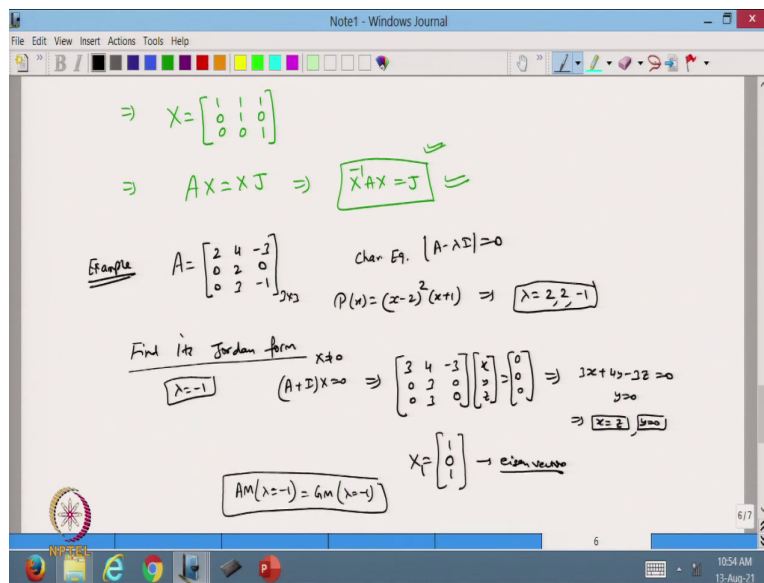 Note1 - Windows Journal
File Edit View Insert Actions Tools Help
B I
⇒ X = [1 1 1; 0 1 0; 0 0 1]
⇒ AX = XJ ⇒ X⁻¹AX = J
Example A = [2 4 -3; 0 2 0; 0 3 -1]3x3 Char Eq. |A-λI|=0
P(x) = (x-2)²(x+1) ⇒ λ = 2, 2, -1
Find its Jordan form
λ=-1 (A+I)X=0 X≠0 ⇒ [3 4 -3; 0 3 0; 0 3 0] [x; y; z] = [0; 0; 0] ⇒ 3x+4y-3z=0
y=0
⇒ x=z, y=0
X₁ = [1; 0; 1] → eigen vector
AM(λ=-1) = GM(λ=-1)
6/7
6
NPTEL
10:54 AM
13-Aug-21